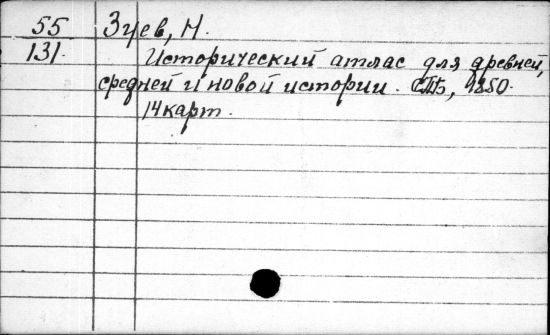 55 Зуев, Н.
131. Исторический атлас для древней,
средней и новой истории. СПБ, 1850.
14 карт.